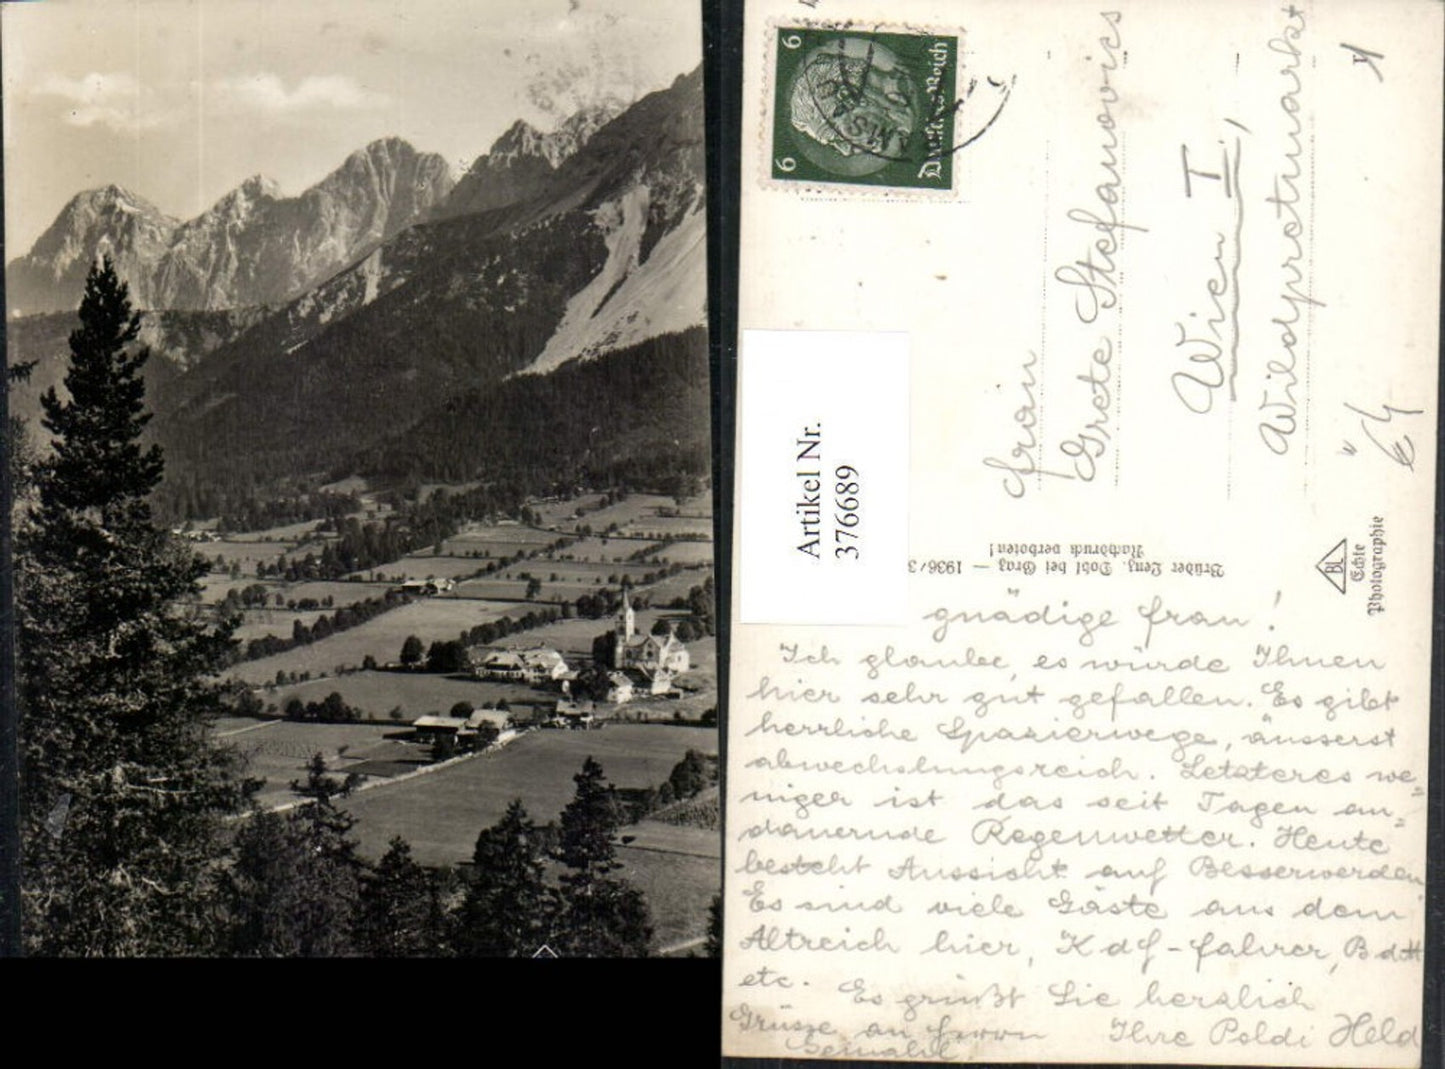 6 6
Deutsches Reich
RAMSAU
Frau
Grete Stefanovics
Wien I,
Wildpretmarkt
Artikel Nr.
376689
Brüder Lenz, Dobl bei Graz — 1936/3
Nachdruck verboten!
BL
Echte
Photographie
gnädige Frau!
Ich glaube, es würde Ihnen
hier sehr gut gefallen. Es gibt
herrliche Spazierwege, äusserst
abwechslungsreich. Letzteres we=
niger ist das seit Tagen an=
dauernde Regenwetter. Heute
besteht Aussicht auf Besserwerden
Es sind viele Gäste aus dem
Altreich hier, KdF-Fahrer, BdM
etc. Es grüßt Sie herzlich
Grüsse an Herrn Ihre Poldi Held
Gemahl